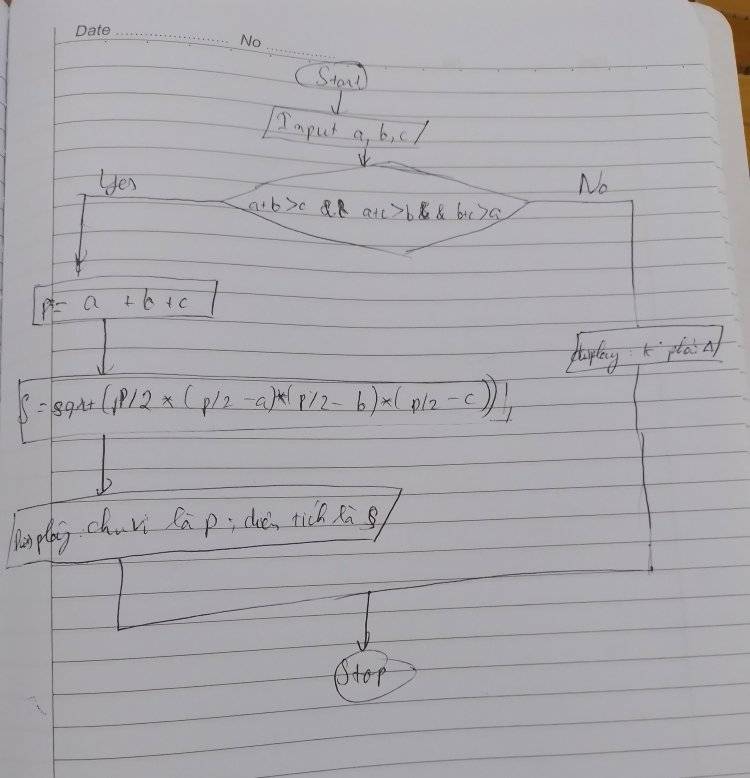 Date
No
Start
Input a, b, c
Yes
No
a+b>c && a+c>b && b+c>a
P = a + b + c
display: k° phải Δ
S = sqrt(P/2 * (p/2 - a)*(p/2 - b)*(p/2 - c))
Display: chu vi là p; diện tích là S
Stop